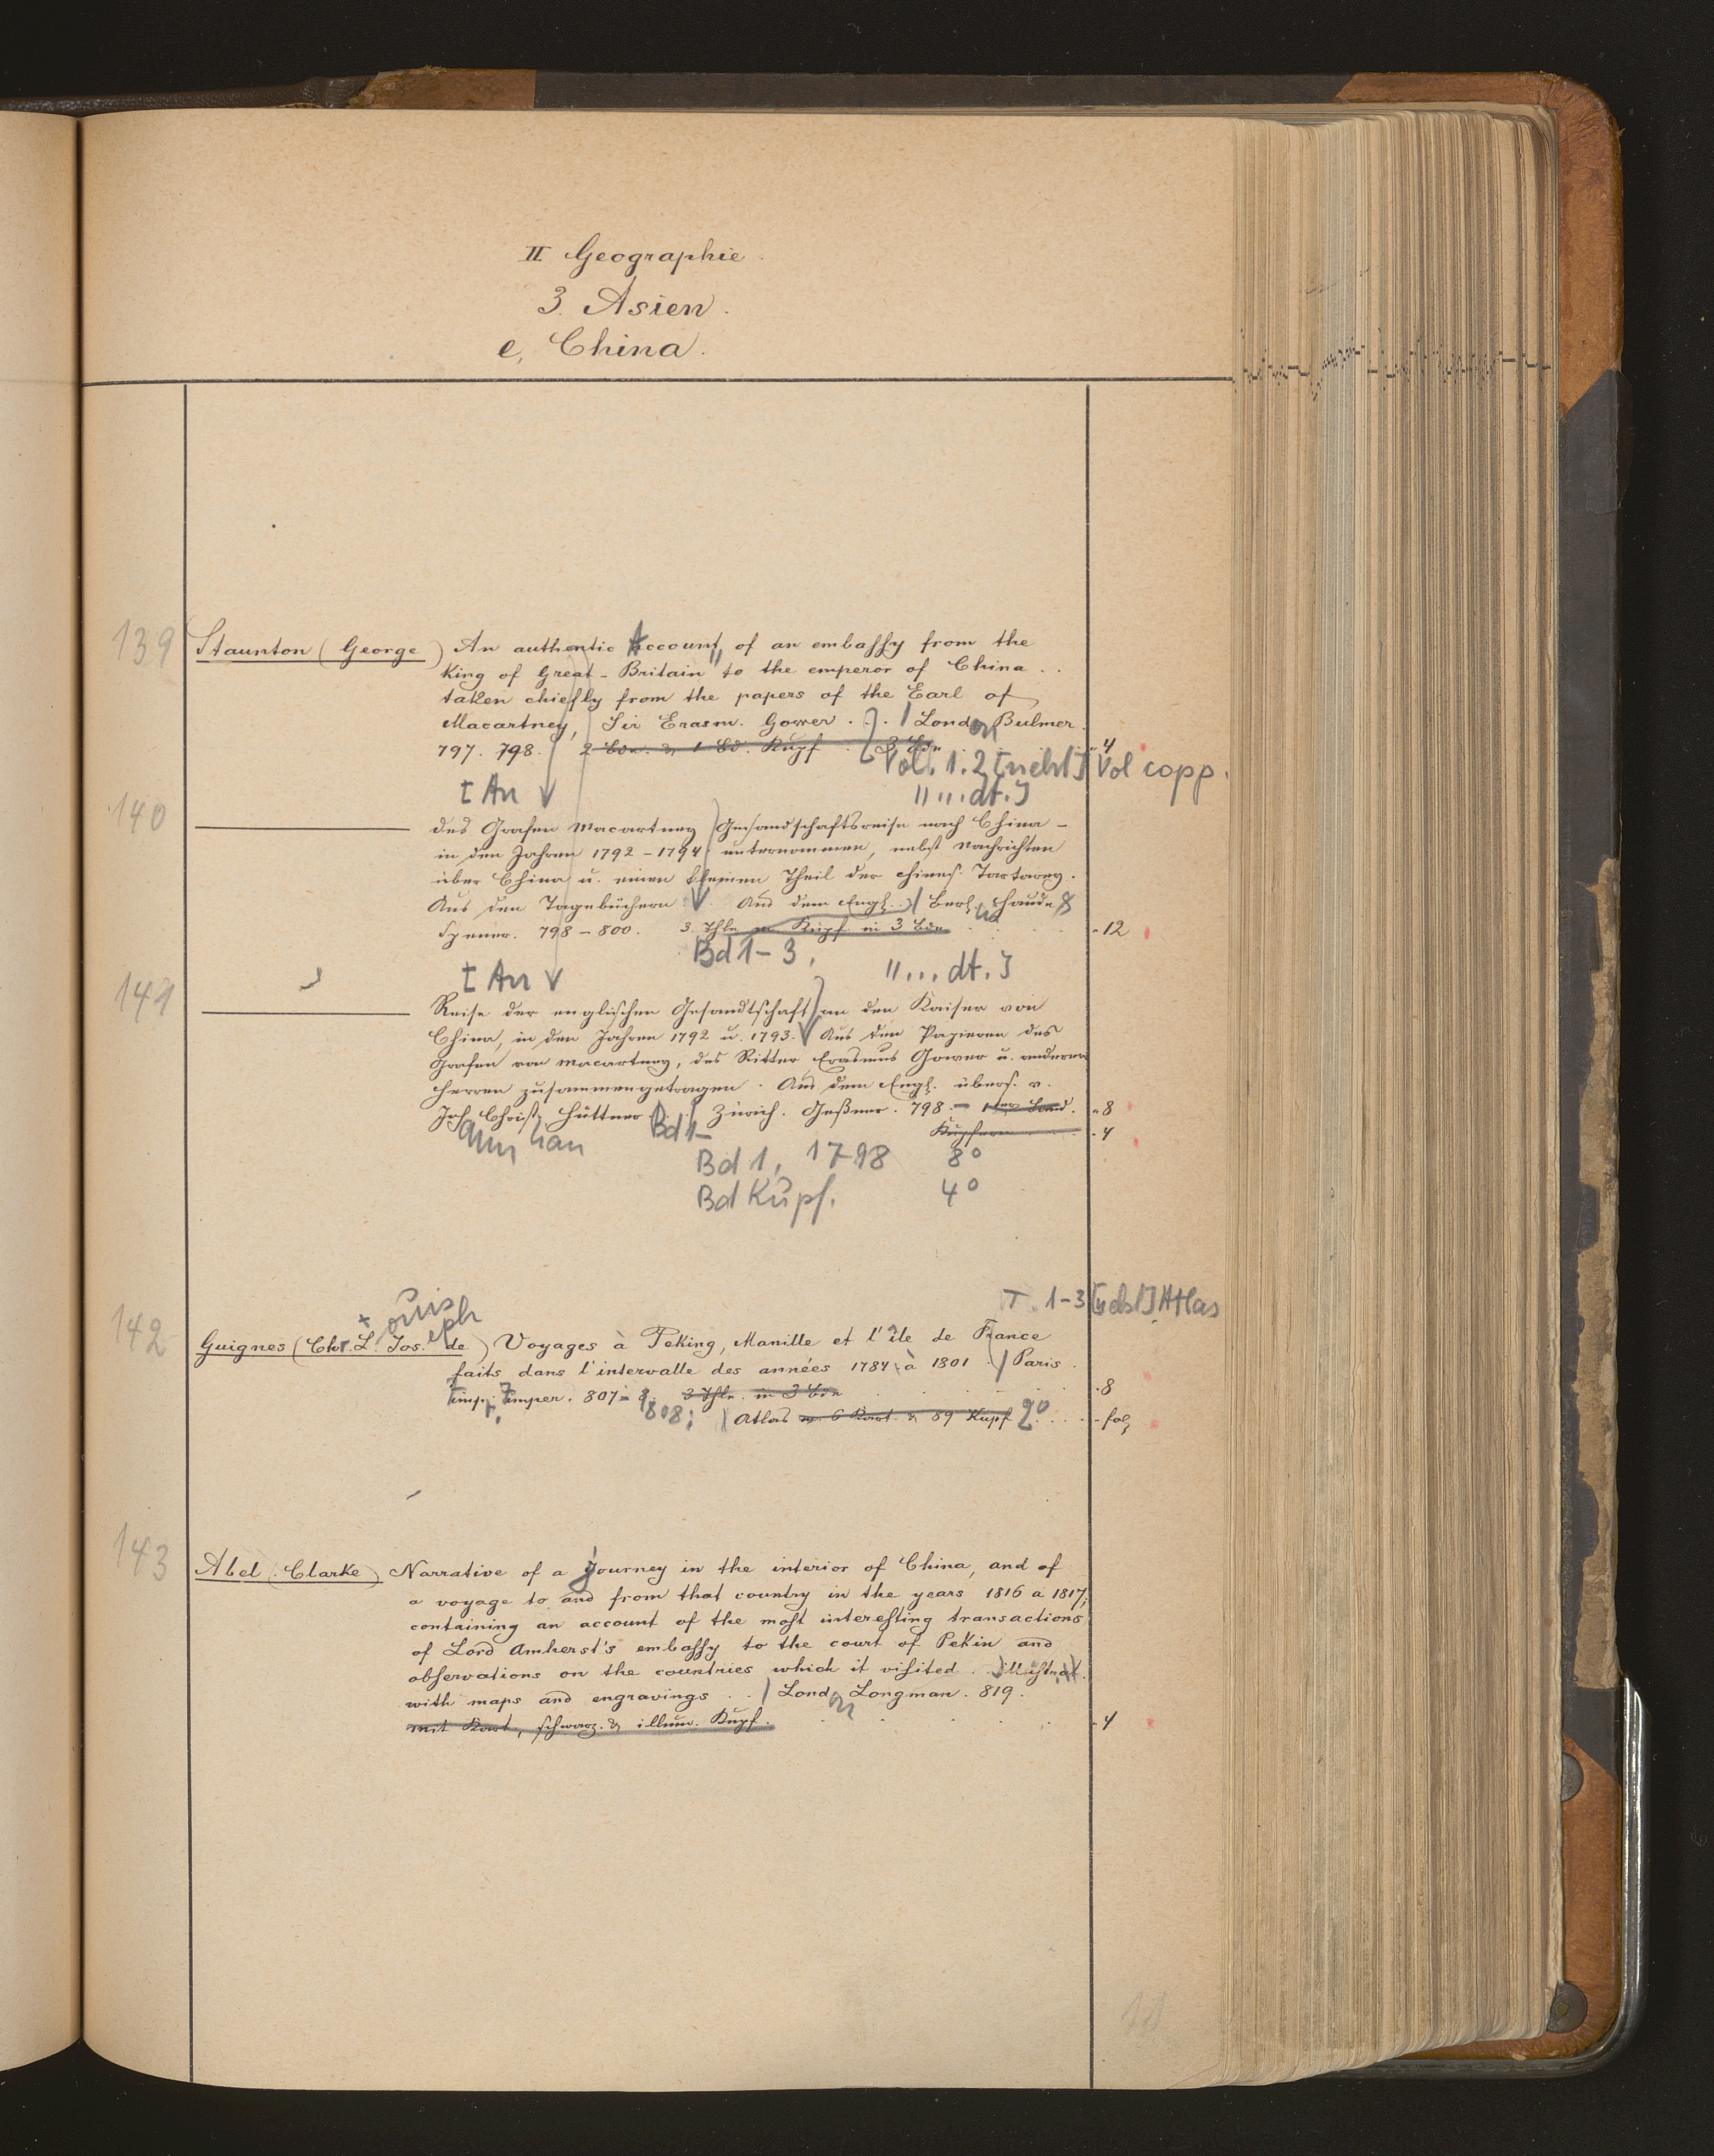 II Geographie.
3. Asien.
e, China.
139 Staunton (George) An authentic Account, of an embassy from the
King of Great-Britain to the emperor of China ..
taken chiefly from the papers of the Earl of
Macartney, Sir Erasm. Gower . . . London Bulmer.
797. 798. 2 Bde. & 1 Bd. Kupf. 3 Bde - 4
Vol. 1.2 [nebst] Vol copp.
[An " ... dt.]
140 des Grafen Macartney Gesandschaftsreise nach China –
in den Jahren 1792–1794 unternommen, nebst Nachrichten
über China u. einen kleinen Theil der chines. Tartarey.
Aus den Tagebüchern. Aus dem Engl. . . Berl. Haude &
Spener. 798–800. 3 Thle m. Kupf. in 3 Bde - 12
Bd 1–3.
[An " ... dt.]
141 Reise der englischen Gesandtschaft an den Kaiser von
China, in den Jahren 1792 u. 1793. Aus den Papieren des
Grafen von Macartney, des Ritter Erasmus Gower u. anderer
Herren zusammengetragen. Aus dem Engl. übers. v.
Joh. Christ. Hüttner . . Zürich. Geßner. 798. – 1ter Band. - 8
Bd 1– Kupfern - 4
Bd 1, 1798 8°
Bd Kupf. 4°
T. 1–3 [nebst] Atlas
ouis eph
142 Guignes (Chr. L. Jos. de) Voyages à Peking, Manille et l'île de France
faits dans l'intervalle des années 1784 à 1801 . Paris.
Imp. Imper. 807– 3 Thle. in 3 Bde - 8
808; Atlas m. 6 Kart. & 89 Kupf. 2° - fol
143 Abel (Clarke) Narrative of a Journey in the interior of China, and of
a voyage to and from that country in the years 1816 a 1817;
containing an account of the most interesting transactions
of Lord Amherst's embassy to the court of Pekin and
observations on the countries which it visited. illustrat.
with maps and engravings . . London Longman. 819.
mit Kart., schwarz. & illum. Kupf. - 4